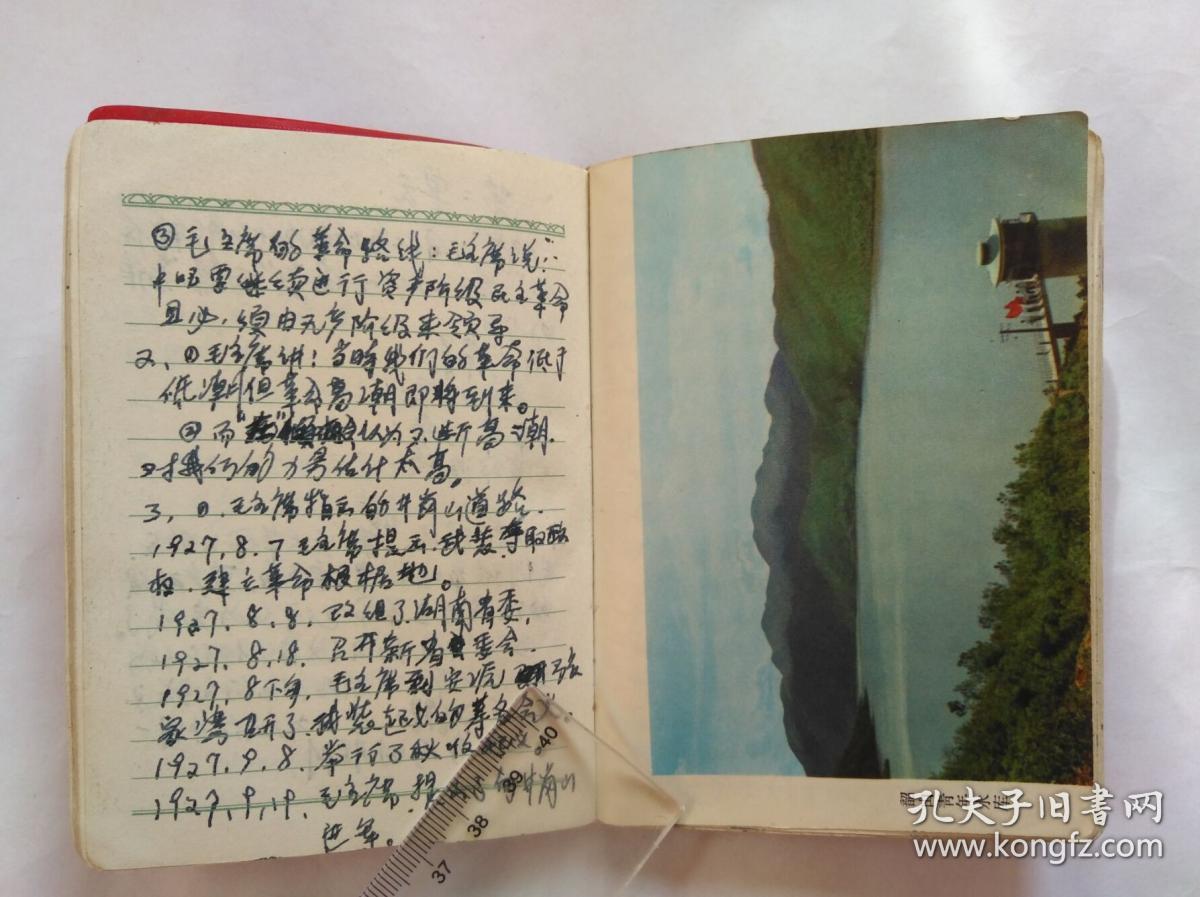 ③毛主席的革命路线:毛主席说:"
中国要继续进行资产阶级民主革命
且必须由无产阶级来领导
2、①毛主席讲:当时我们的革命低于
低潮但革命高潮即将到来。
②而 认为不断高潮.
对 的力量估计太高。
3、①.毛主席指示的井岗山道路.
1927.8.7毛主席提出.武装夺取政
权.建立革命根据地。
1927.8.8.改组了湖南省委.
1927.8.18.召开新省委会.
1927.8下旬.毛主席到安源 张
家湾召开了.武装起义的军事会议.
1927.9.8.举行了秋收
1927.9.19.毛主席.提 了向井岗山
进军。
韶山青年水库
40
39
38
37
孔夫子旧书网
www.kongfz.com